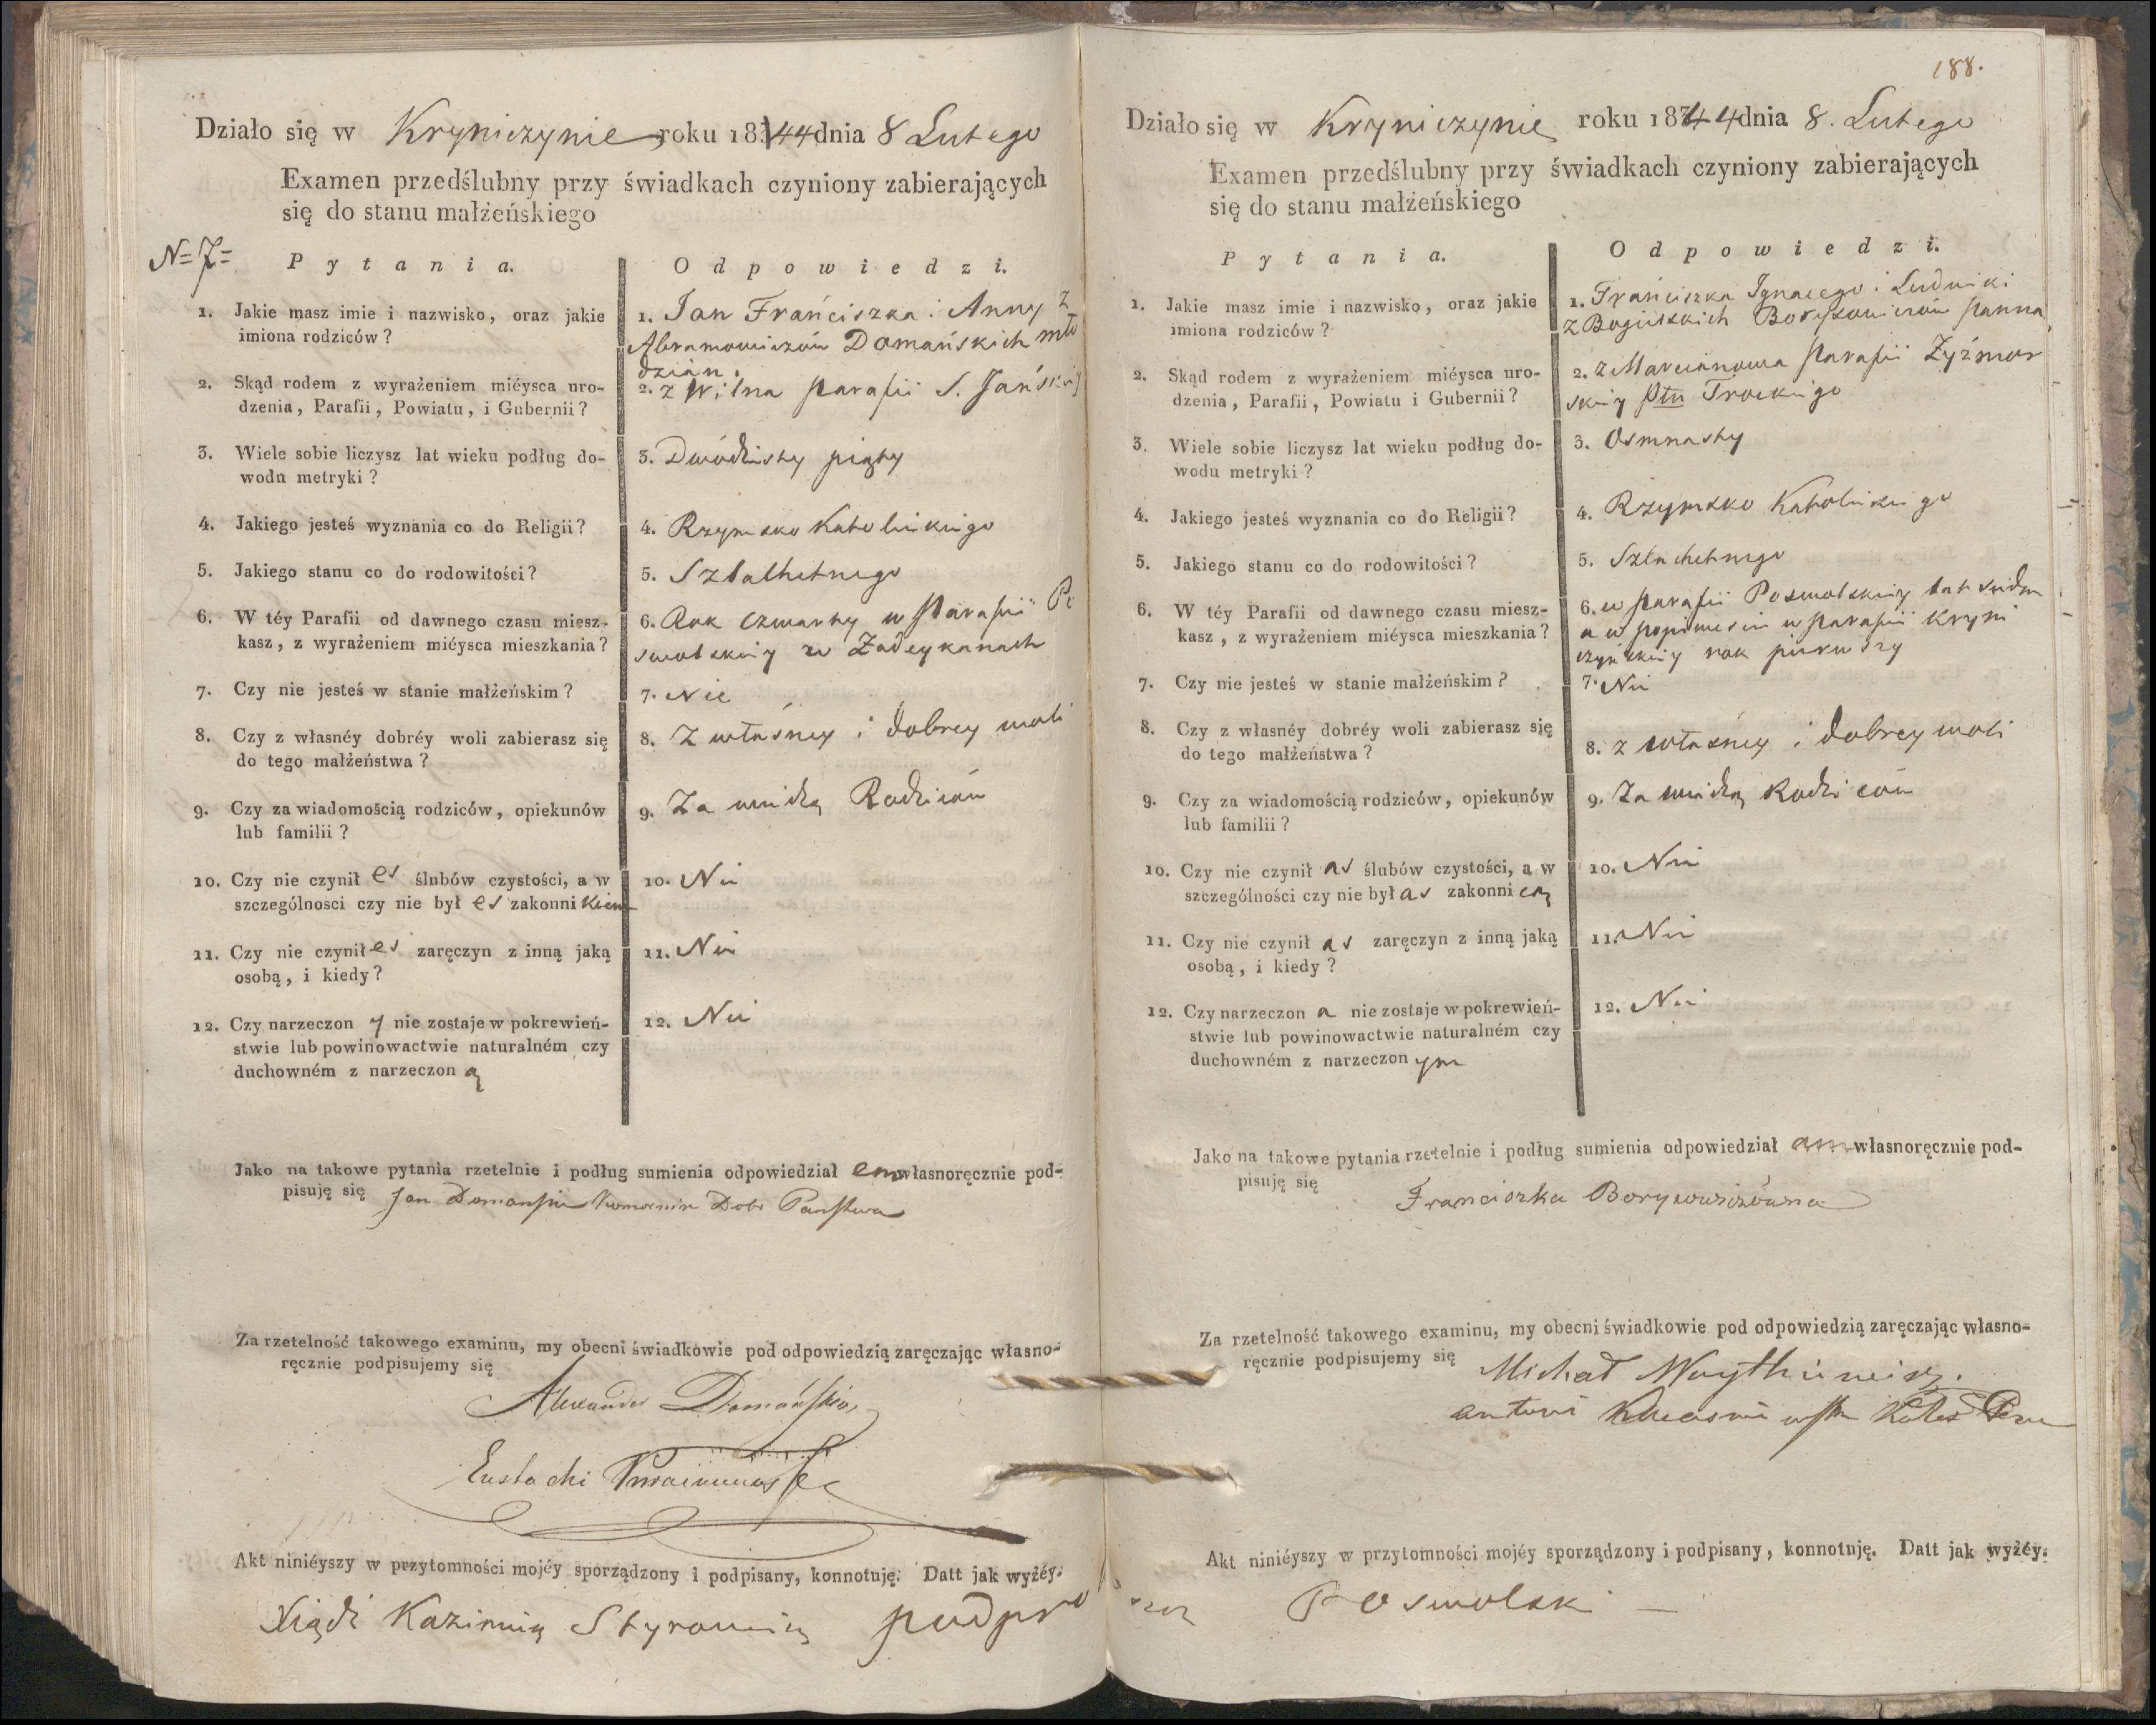 Działo się w Kryniczynie roku 1844 dnia 8 Lutego
Examen przedślubny przy świadkach czyniony zabierających
się do stanu małżeńskiego
N= 7=
Pytania.
Odpowiedzi.
1. Jakie masz imie i nazwisko, oraz jakie
imiona rodziców?
1. Jan Franćiszka i Anny z
Abramowiczów Domańskich mło
dzian.
2. Skąd rodem z wyrażeniem miéysca uro-
dzenia, Parafii, Powiatu, i Gubernii?
2. z Wilna Parafii S. Jańskiey
3. Wiele sobie liczysz lat wieku podług do-
wodu metryki?
3. Dwódziesty piąty
4. Jakiego jesteś wyznania co do Religii?
4. Rzymsko Katolickiego
5. Jakiego stanu co do rodowitości?
5. Szlachetnego
6. W téy Parafii od dawnego czasu miesz-
kasz, z wyrażeniem miéysca mieszkania?
6. Rok czwarty w Parafii Po
swolskiey w Zadeykanach
7. Czy nie jesteś w stanie małżeńskim?
7. Nie
8. Czy z własnéy dobréy woli zabierasz się
do tego małżeństwa?
8. Z własney i dobrey woli
9. Czy za wiadomością rodziców, opiekunów
lub familii?
9. Za wiedzą Rodziców
10. Czy nie czynił eś ślubów czystości, a w
szczególności czy nie był eś zakonnikiem
10. Nie
11. Czy nie czynił eś zaręczyn z inną jaką
osobą, i kiedy?
11. Nie
12. Czy narzeczon y nie zostaje w pokrewień-
stwie lub powinowactwie naturalném czy
duchowném z narzeczon ą
12. Nie
Jako na takowe pytania rzetelnie i podług sumienia odpowiedział em własnoręcznie pod-
pisuję się Jan Domański Komornik Dobr Państwa
Za rzetelność takowego examinu, my obecni świadkowie pod odpowiedzią zaręczając własno-
ręcznie podpisujemy się
Alexander Domański
Eustachi
Akt niniéyszy w przytomności mojéy sporządzony i podpisany, konnotuję. Datt jak wyżéy.
Xiądz Kazimierz Styrowicz podpro
188.
Działo się w Kryniczynie roku 1844 dnia 8. Lutego
Examen przedślubny przy świadkach czyniony zabierających
się do stanu małżeńskiego
Pytania.
Odpowiedzi.
1. Jakie masz imie i nazwisko, oraz jakie
imiona rodziców?
1. Franciszka Ignacego i Ludwiki
z Boguckich Borysowiczów Panna
2. Skąd rodem z wyrażeniem miéysca uro-
dzenia, Parafii, Powiatu i Gubernii?
2. z Marcianowa Parafii Żyźmor
skiey Ptu Trockiego
3. Wiele sobie liczysz lat wieku podług do-
wodu metryki?
3. Osmnasty
4. Jakiego jesteś wyznania co do Religii?
4. Rzymsko Katolickiego
5. Jakiego stanu co do rodowitości?
5. Szlachetnego
6. W téy Parafii od dawnego czasu miesz-
kasz, z wyrażeniem miéysca mieszkania?
6. w Parafii Poswolskiey lat siedm
a w Parafii Kryni
czyńskiey rok pierwszy
7. Czy nie jesteś w stanie małżeńskim?
7. Nie
8. Czy z własnéy dobréy woli zabierasz się
do tego małżeństwa?
8. z własney i dobrey woli
9. Czy za wiadomością rodziców, opiekunów
lub familii?
9. Za wiedzą Rodziców
10. Czy nie czynił aś ślubów czystości, a w
szczególności czy nie był aś zakonnicą
10. Nie
11. Czy nie czynił aś zaręczyn z inną jaką
osobą, i kiedy?
11. Nie
12. Czy narzeczon a nie zostaje w pokrewień-
stwie lub powinowactwie naturalném czy
duchowném z narzeczon ym
12. Nie
Jako na takowe pytania rzetelnie i podług sumienia odpowiedział am własnoręcznie pod-
pisuję się
Franciszka Borysowiczówna
Za rzetelność takowego examinu, my obecni świadkowie pod odpowiedzią zaręczając własno-
ręcznie podpisujemy się Michał Woytkiewicz.
Antoni
Akt niniéyszy w przytomności mojéy sporządzony i podpisany, konnotuję. Datt jak wyżéy.
szcz Poswolski